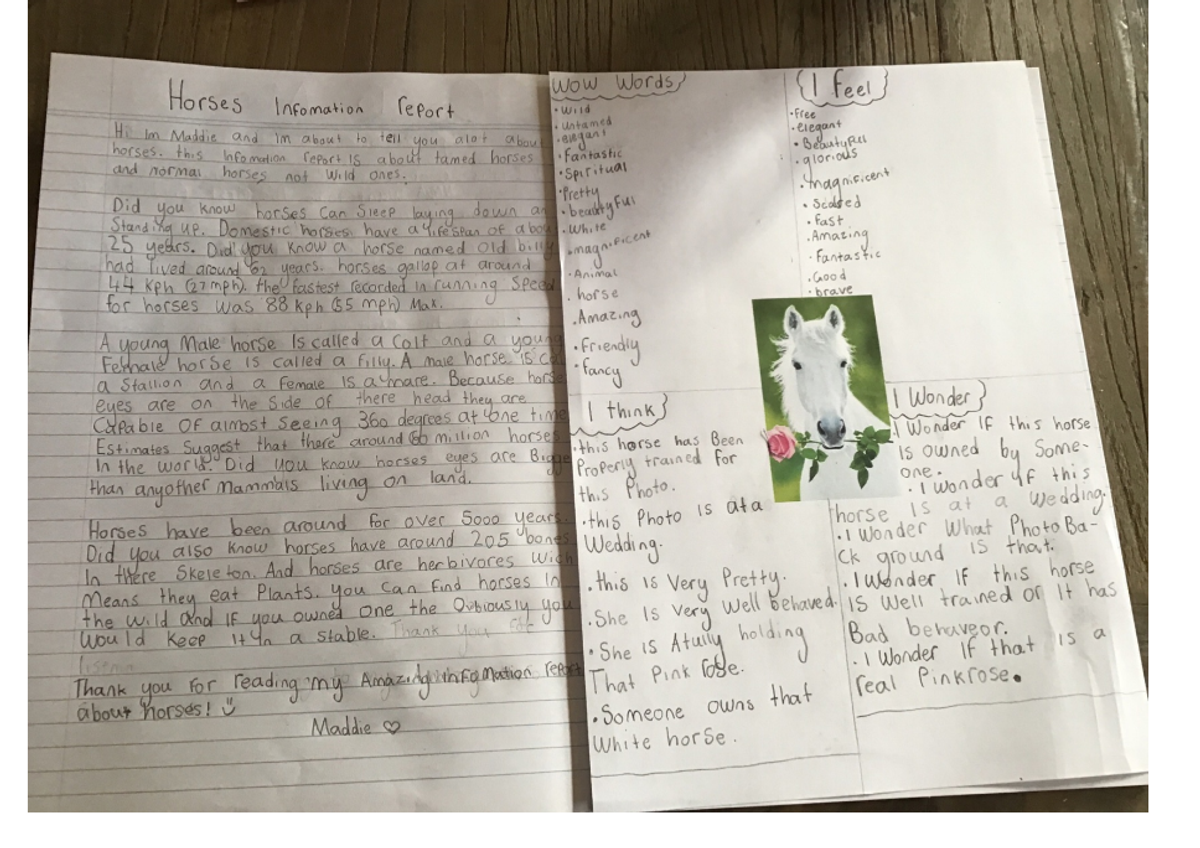 Horses Infomation report
Hi Im Maddie and im about to tell you alot about
horses. this infomation report is about tamed horses
and normal horses not wild ones.
Did you know horses can sleep laying down an
Standing up. Domestic horses have a lifespan of abou
25 years. Did you know a horse named old billy
had lived around 62 years. horses gallop at around
44 kph (27 mph). the fastest recorded in running speed
for horses was 88 kph (55 mph) Max.
A young Male horse is called a colt and a young
Female horse is called a filly. A male horse is
a Stallion and a Female is a mare. Because hors
eyes are on the side of there head they are
Capable of almost seeing 360 degrees at one time
Estimates Suggest that there around 60 million horses
In the world. Did you know horses eyes are Bigg
than anyother Mammals living on land.
Horses have been around for over 5000 years.
Did you also know horses have around 205 bones
In there Skeleton. And horses are herbivores wich
Means they eat Plants. you can find horses in
the wild and if you owned one the Oubiously you
Would keep it in a stable. Thank you
Thank you for reading my Amazing infomation report
about horses!
Maddie ♡
Wow Words
• Wild
• untamed
• elegant
• fantastic
• Spiritual
• Pretty
• beautyful
• White
• magnificent
• Animal
• horse
• Amazing
• Friendly
• fancy
I feel
• Free
• elegant
• Beautyfull
• glorious
• magnificent
• Scared
• fast
• Amazing
• Fantastic
• Good
• brave
I think
• this horse has Been
Properly trained for
this Photo.
• this Photo is at a
Wedding.
• this is Very Pretty.
• She is Very Well behaved.
• She is Atully holding
That Pink rose.
• Someone owns that
White horse.
I Wonder
I Wonder If this horse
Is owned by Some-
one.
• I wonder if this
horse Is at a wedding.
• I Wonder What Photo Ba-
ck ground is that.
• I Wonder If this horse
IS Well trained or It has
Bad behaveor.
• I Wonder If that is a
real Pinkrose.